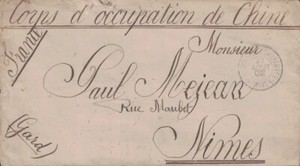 Corps d'occupation de Chine
France
Monsieur
Paul Mejean
Rue Maubet
Nimes
(Gard)